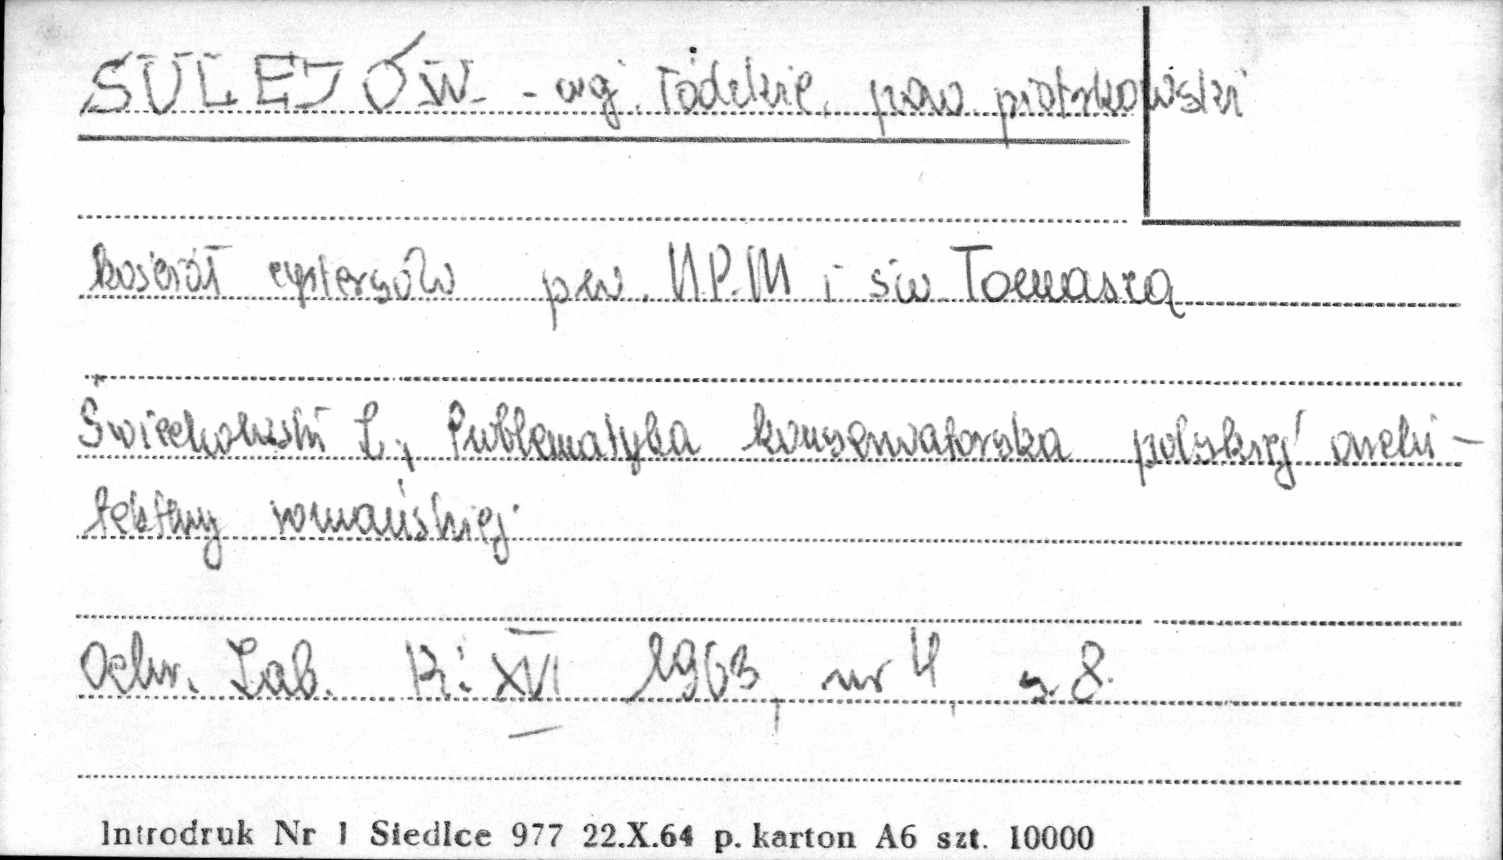 SULEJÓW - woj. łódzkie, pow. piotrkowski
kościół cystersów p.w. N.P.M i św Tomasza
Świechowski Z., Problematyka konserwatorska polskiej archi-
tektury romańskiej.
Ochr. Zab. R: XVI 1963, nr 4, s. 8.
Introdruk Nr 1 Siedlce 977 22.X.64 p. karton A6 szt. 10000